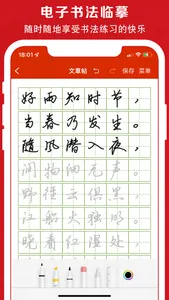 电子书法临摹
随时随地享受书法练习的快乐
18:01
文章帖
保存 菜单
好雨知时节，
当春乃发生。
随风潜入夜，
润物细无声。
野径云俱黑，
江船火独明。
晓看红湿处，